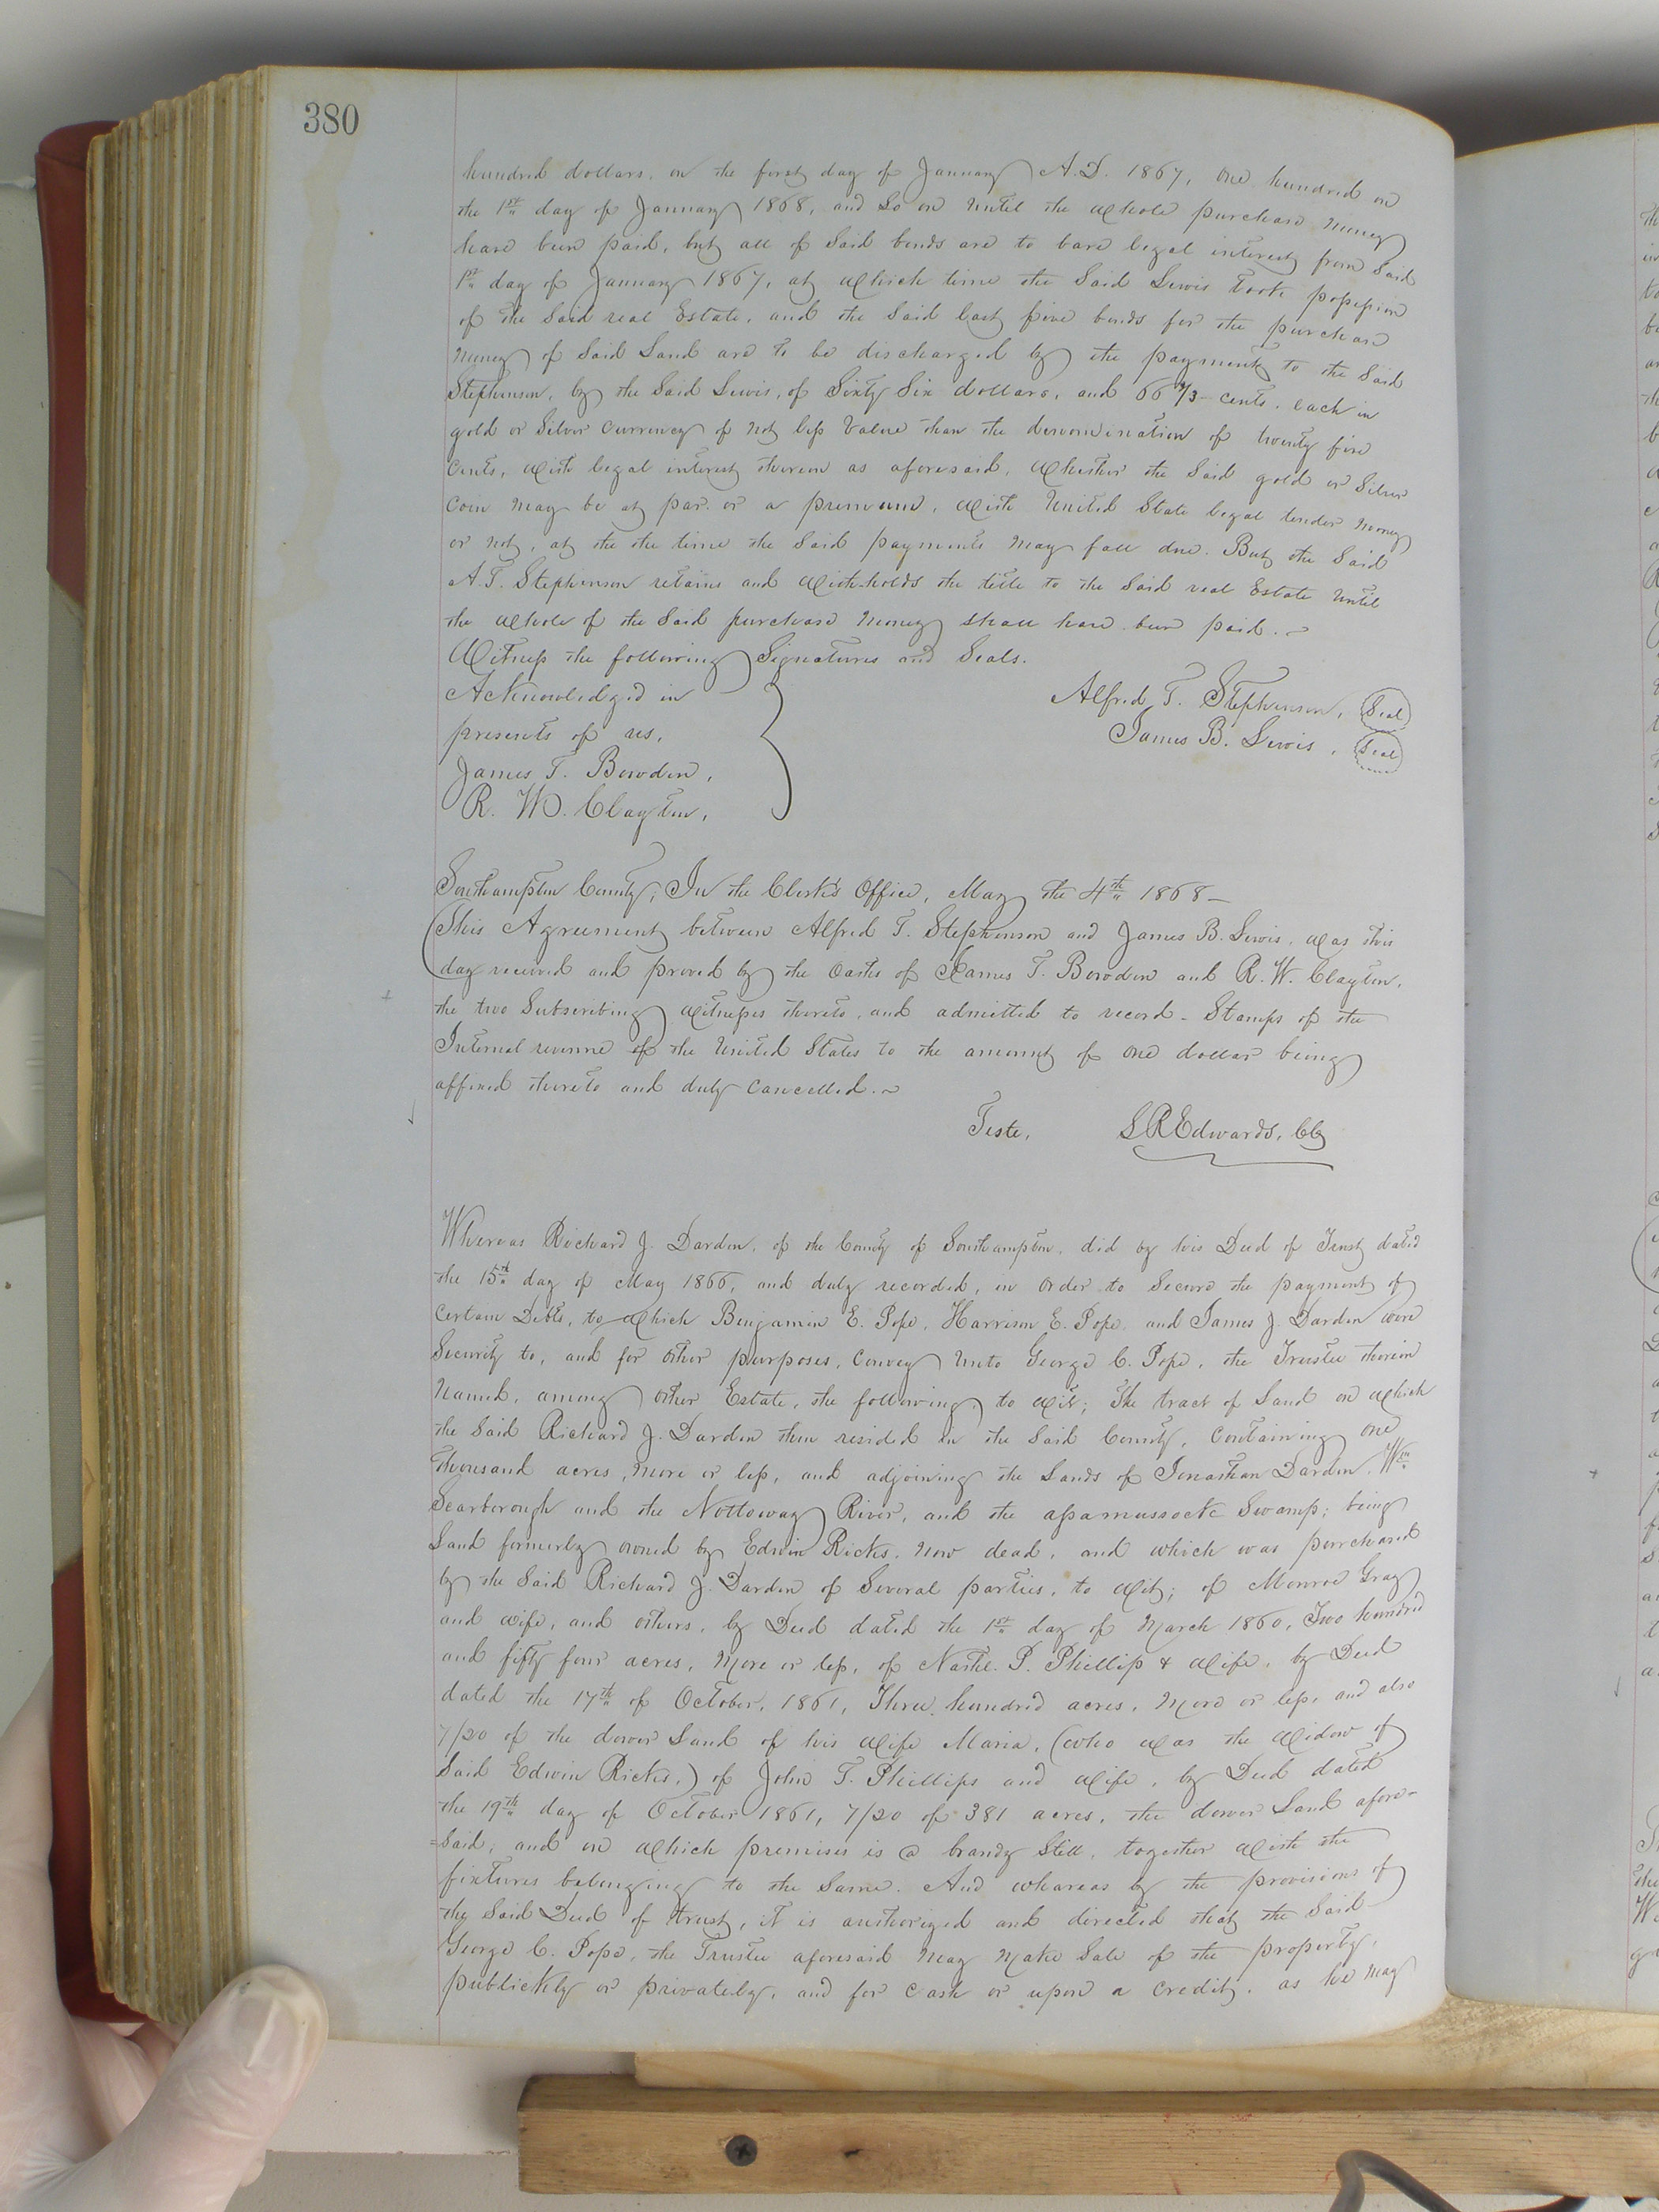 380
hundred dollars, on the first day of January A.D. 1867, one hundred on
the 1st day of January 1868, and So on until the whole purchase money
have been paid, but all of Said bonds are to bare legal interest from Said
1st day of January 1867, at which time the Said Lewis took possession
of the Said real Estate, and the Said last five bonds for the purchase
money of Said Land are to be discharged by the payment to the Said
Stephenson, by the Said Lewis, of Sixty Six dollars, and 66 2/3 cents, each in
gold or Silver Currency of not less Value than the denomination of twenty five
Cents, with legal interest thereon as aforesaid, Whether the Said gold or Silver
Coin may be at par or a premium, with United State legal tender money
or not, at the the time the Said payments may fall due. But the Said
A. T. Stephenson retains and withholds the title to the Said real Estate until
the whole of the Said purchase money shall have been paid.
Witness the following Signatures and Seals.
Acknowledged in
presents of us,
James T. Bowden,
R. W. Clayton,
Alfred T. Stephenson, Seal
James B. Lewis, Seal
Southampton County; In the Clerk's Office, May the 4th 1868
This Agreement between Alfred T. Stephenson and James B. Lewis, was this
day received and proved by the oaths of James T. Bowden and R. W. Clayton,
the two Subscribing witnesses thereto, and admitted to record - Stamps of the
Internal revenue of the United States to the amount of one dollar being
affixed thereto and duly Cancelled.
Teste, L R Edwards, Clk
Whereas Richard J. Darden, of the County of Southampton, did by his Deed of Trust dated
the 15th day of May 1866, and duly recorded, in order to Secure the payment of
Certain Debts, to which Benjamin E. Pope, Harrison E. Pope, and James J. Darden were
Security to, and for other purposes, Convey unto George C. Pope, the Trustee therein
Named, among other Estate, the following to wit; The tract of Land on which
the Said Richard J. Darden then resided in the Said County, Containing one
Thousand acres, more or less, and adjoining the Lands of Jonathan Darden, Wm
Scarborough and the Nottoway River, and the assamussock Swamp; being
Land formerly owned by Edwin Ricks, now dead, and which was purchased
by the Said Richard J. Darden of Several parties, to wit; of Monroe Gray
and wife, and others, by Deed dated the 1st day of March 1860, Two hundred
and fifty four acres, more or less, of Nathl. P. Phillips & wife, by Deed
dated the 17th of October, 1861, Three hundred acres, more or less, and also
7/20 of the dower Land of his wife Maria, (who was the widow of
Said Edwin Ricks,) of John T. Phillips and wife, by Deed dated
the 19th day of October 1861, 7/20 of 381 acres, the dower Land afore-
=Said, and on which premises is a brandy Still, together with the
fixtures belonging to the Same. And whareas by the provisions of
the Said Deed of trust, it is authorized and directed that the Said
George C. Pope, the Trustee aforesaid may make Sale of the property,
publickly or privately, and for Cash or upon a Credit, as he may